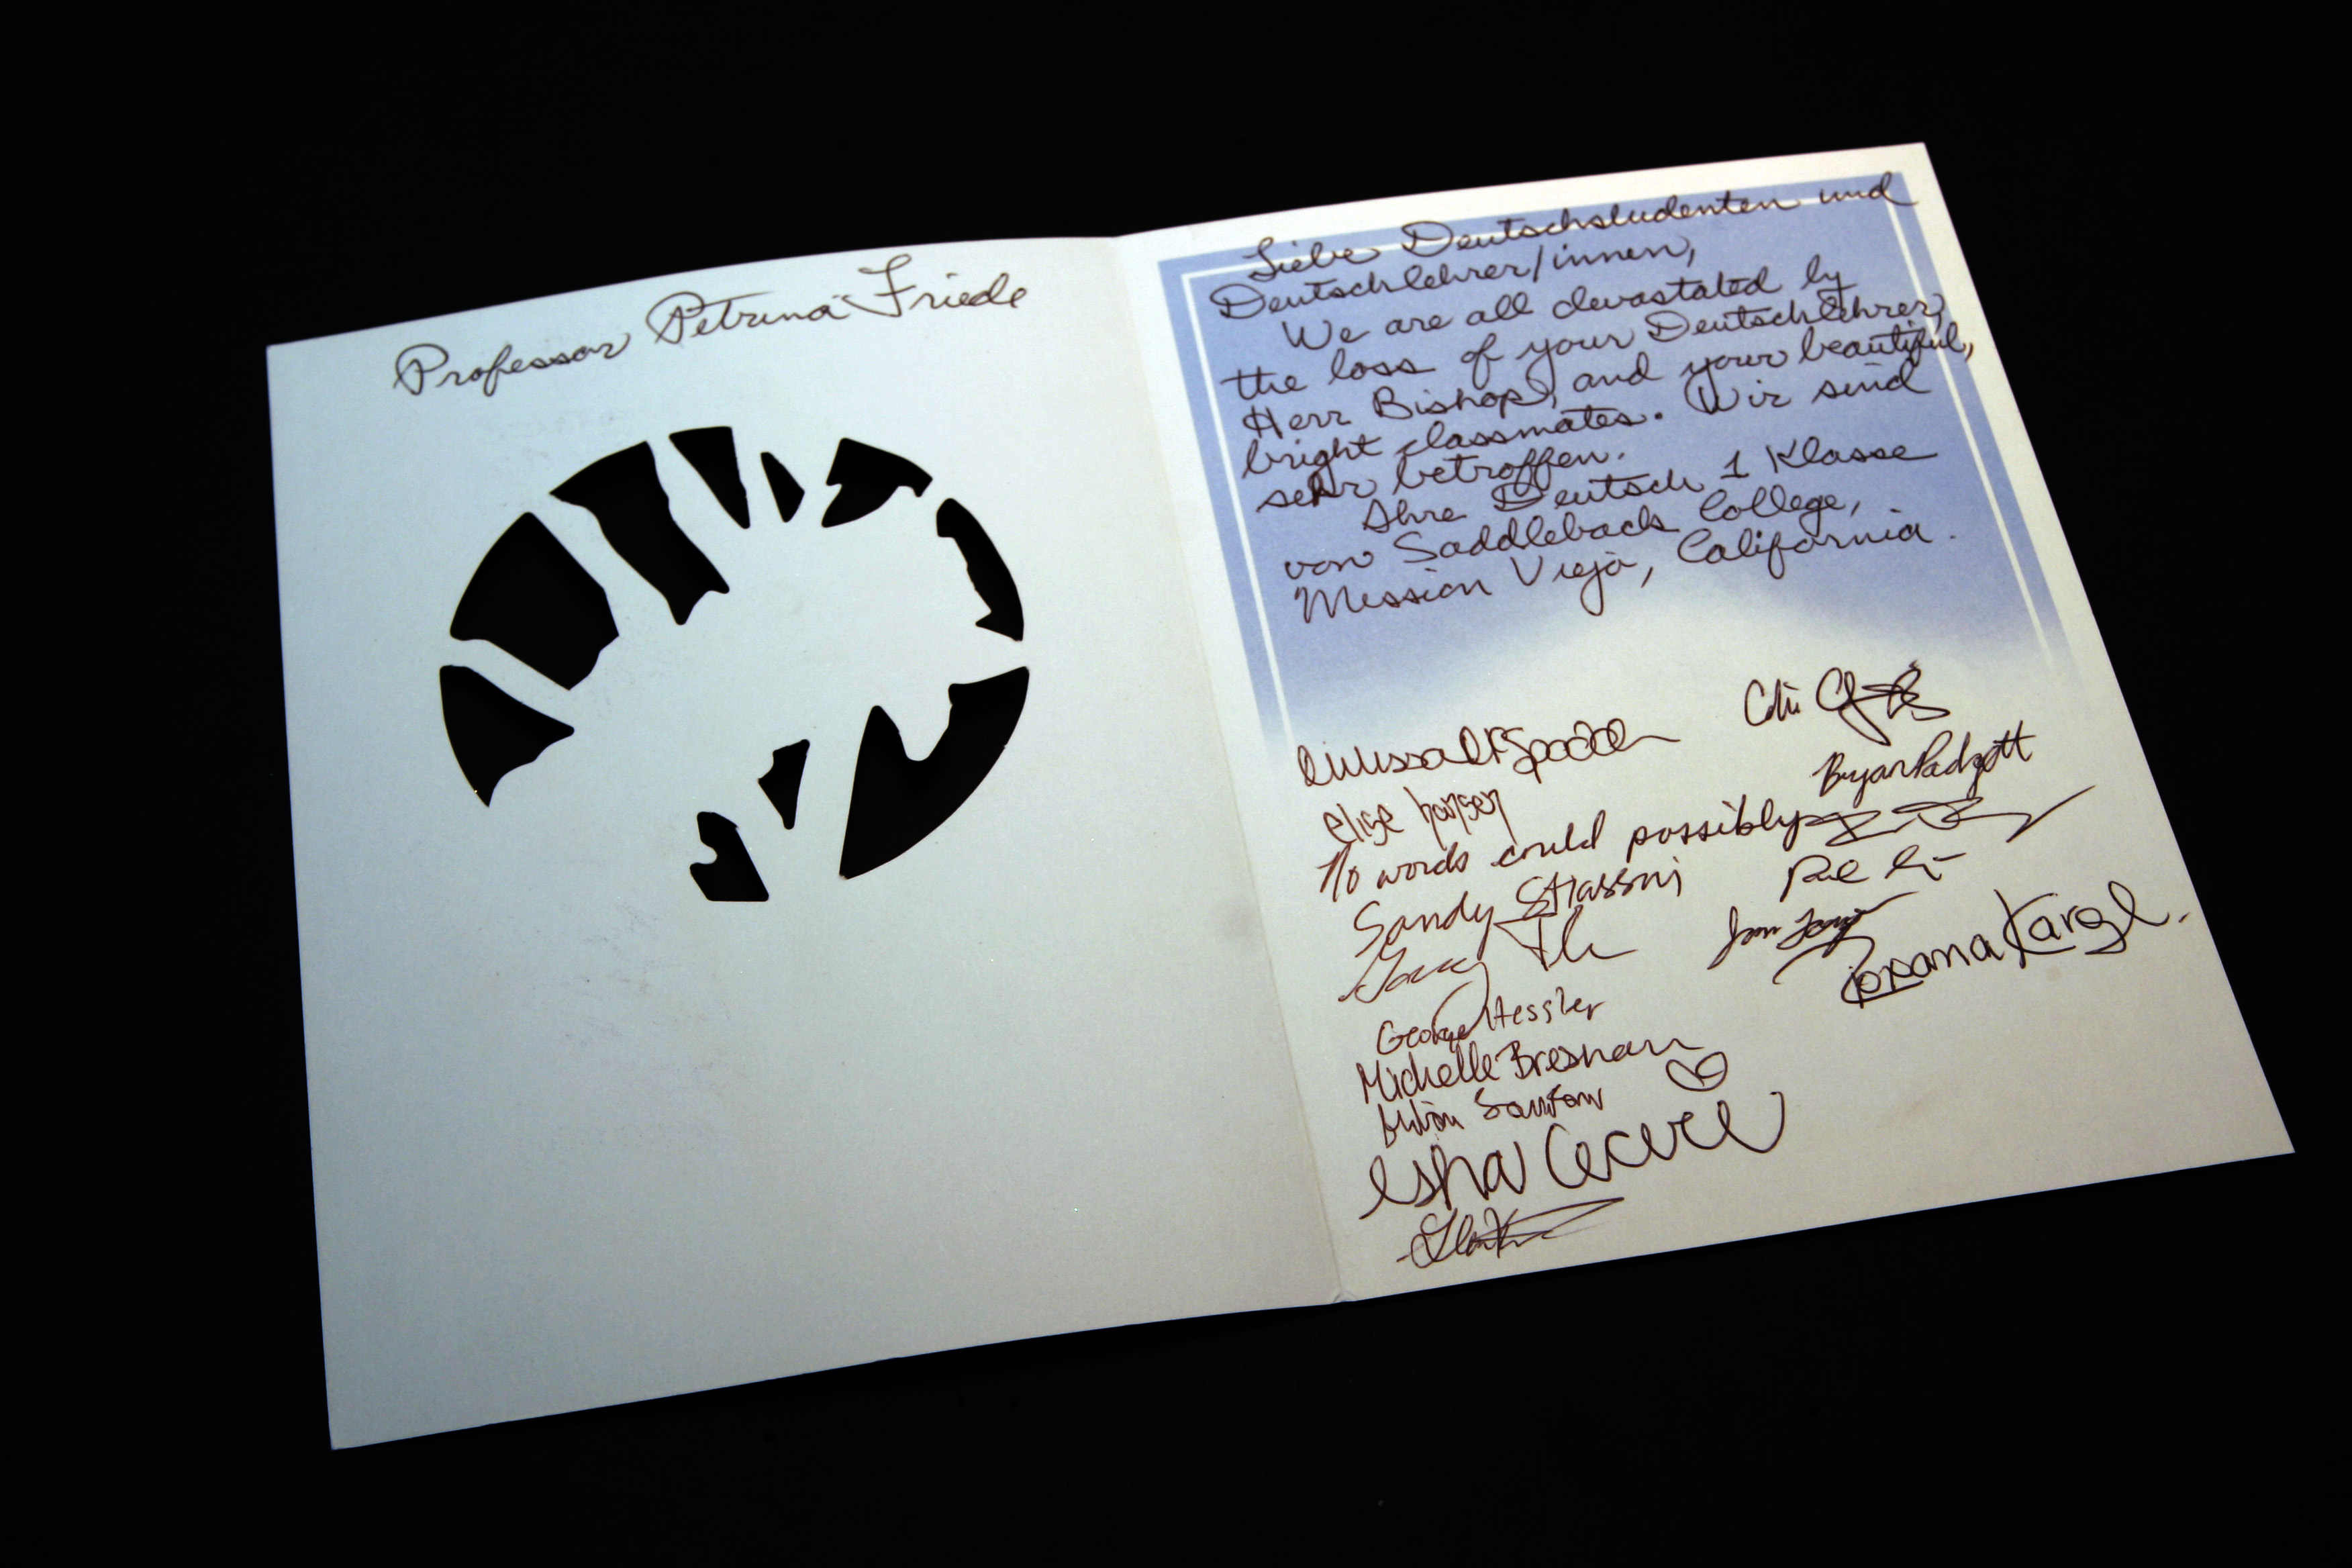 Professor Petrina Friede
Liebe Deutschstudenten und
Deutschlehrer/innen,
We are all devastated by
the loss of your Deutschlehrer,
Herr Bishop, and your beautiful,
bright classmates. Wir sind
sehr betroffen.
Ihre Deutsch 1 Klasse
von Saddleback College,
Mission Viejo, California.
elise hansen
Bryan Padgett
No words could possibly
Sandy
George Hessler
Michelle Bresnan
Esha Cecere
Kargl